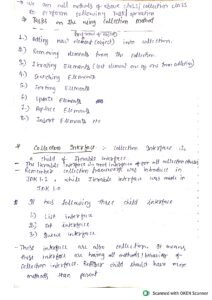 → we can call methods of above class/ collection class
to perform following task/ operation
* Tasks on the using collection method
1.) Adding new element (object) into collection.
2.) Removing elements from the collection.
3.) Iterating Elements (get element one by one from collection)
4.) Searching Elements
5.) Sorting Elements
6.) Update Elements
7.) Replace Elements
8.) Insert Elements
* Collection Interface :- Collection interface is
a child of Iterable interface
- The Iterable interface is root interface of all collection classes
- Remember collection framework was introduce in
JDK 1.2, while Iterable interface was made in
JDK 1.0
- It has following three child interface
1) List interface
2) Set interface
3) Queue interface
- These interface are also collection, It means
those interface are having all methods/ behaviour of
Collection interface. Rather child should have more
methods than parent
Scanned with OKEN Scanner